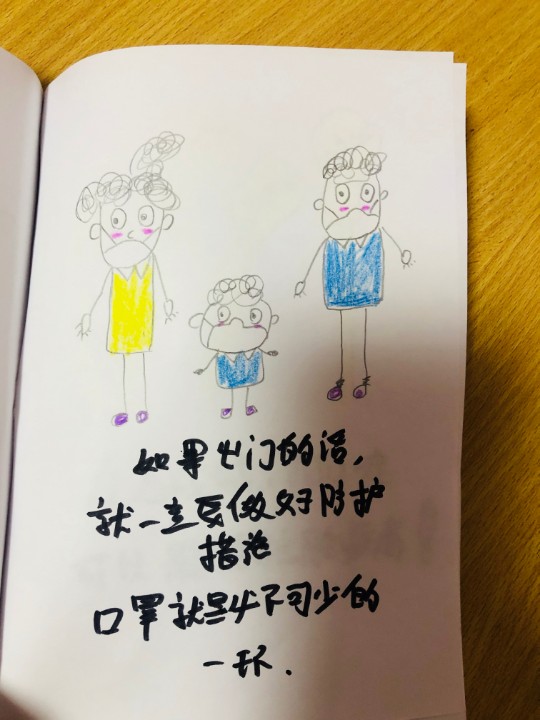 如果出门的话，
就一定要做好防护
措施
口罩就是必不可少的
一环.